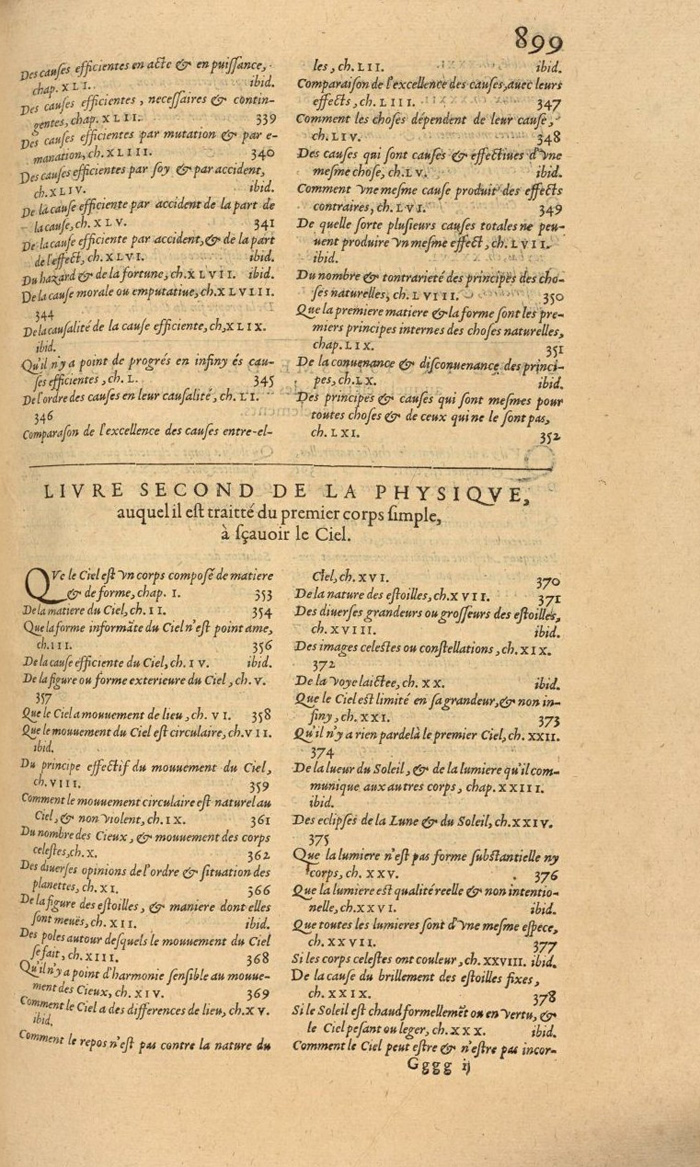 899
Des causes efficientes en acte & en puissance,
chap. XLI. ibid.
Des causes efficientes, necessaires & contin-
gentes, chap. XLII. 339
Des causes efficientes par mutation & par e-
manation, ch. XLIII. 340
Des causes efficientes par soy & par accident,
ch. XLIV. ibid.
De la cause efficiente par accident de la part de
la cause, ch. XLV. 341
De la cause efficiente par accident, & de la part
de l'effect, ch. XLVI. ibid.
Du hazard & de la fortune, ch. XLVII. ibid.
De la cause morale ou emputatiue, ch. XLVIII.
344
De la causalité de la cause efficiente, ch, XLIX.
ibid.
Qu'il n'y a point de progrés en infiny és cau-
ses efficientes, ch. L. 345
De l'ordre des causes en leur causalité, ch. LI.
346
Comparason de l'excellence des causes entre-el-
les, ch. LII. ibid.
Comparaison de l'excellence des causes, auec leurs
effects, ch. LIII. 347
Comment les choses dependent de leur cause,
ch. LIV. 348
Des causes qui sont causes & effectiues d'vne
mesme chose, ch. LV. ibid.
Comment vne mesme cause produit des effects
contraires, ch. LVI. 349
De quelle sorte plusieurs causes totales ne peu-
uent produire vn mesme effect, ch. LVII.
ibid.
Du nombre & tontrarieté des principes des cho-
ses naturelles, ch. LVIII. 350
Que la premiere matiere & la forme sont les pre-
miers principes internes des choses naturelles,
chap. LIX. 351
De la conuenance & disconuenance des princi-
pes, ch. LX. ibid.
Des principes & causes qui sont mesmes pour
toutes choses & de ceux qui ne le sont pas,
ch. LXI. 352
LIVRE SECOND DE LA PHYSIQVE,
auquel il est traitté du premier corps simple,
à sçauoir le Ciel.
QVe le Ciel est vn corps composé de matiere
& de forme, chap. I. 353
De la matiere du Ciel, ch. II. 354
Que la forme informāte du Ciel n'est point ame,
ch. III. 356
De la cause efficiente du Ciel, ch. IV. ibid.
De la figure ou forme exterieure du Ciel, ch. V.
357
Que le Ciel a mouuement de lieu, ch. VI. 358
Que le mouuement du Ciel est circulaire, ch. VII.
ibid.
Du principe effectif du mouuement du Ciel,
ch. VIII. 359
Comment le mouuement circulaire est naturel au
Ciel, & non violent, ch. IX. 361
Du nombre des Cieux, & mouuement des corps
celestes, ch. X. 362
Des diuerses opinions de l'ordre & situation des
planettes, ch. XI. 366
De la figure des estoilles, & maniere dont elles
sont meuës, ch. XII. ibid.
Des poles autour desquels le mouuement du Ciel
se fait, ch. XIII. 368
Qu'il n'y a point d'harmonie sensible au mouue-
ment des Cieux, ch. XIV. 369
Comment le Ciel a des differences de lieu, ch. XV.
ibid.
Comment le repos n'est pas contre la nature du
Ciel, ch. XVI. 370
De la nature des estoilles, ch. XVII. 371
Des diuerses grandeurs ou grosseurs des estoilles,
ch. XVIII. ibid.
Des images celestes ou constellations, ch. XIX.
372
De la voye laictee, ch. XX. ibid.
Que le Ciel est limité en sa grandeur, & non in-
finy, ch. XXI. 373
Qu'il n'y a rien pardelà le premier Ciel, ch. XXII.
374
De la lueur du Soleil, & de la lumiere qu'il com-
munique aux autres corps, chap. XXIII.
ibid.
Des eclipses de la Lune & du Soleil, ch. XXIV.
375
Que la lumiere n'est pas forme substantielle ny
corps, ch. XXV. 376
Que la lumiere est qualité reelle & non intentio-
nelle, ch. XXVI. ibid.
Que toutes les lumieres sont d'vne mesme espece,
ch. XXVII. 377
Si les corps celestes ont couleur, ch. XXVIII. ibid.
De la cause du brillement des estoilles fixes,
ch. XXIX. 378
Si le Soleil est chaud formellemēt ou en vertu, &
le Ciel pesant ou leger, ch. XXX. ibid.
Comment le Ciel peut estre & n'estre pas incor-
Gggg ij